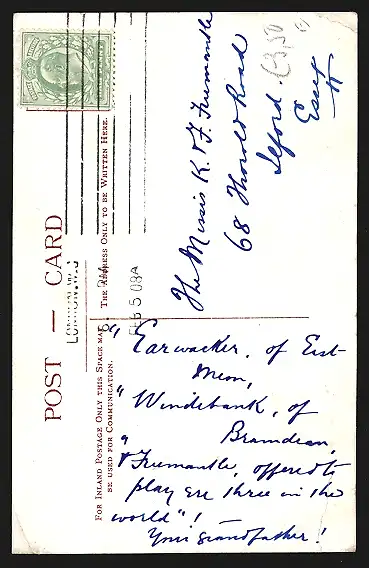 POST — CARD
FOR INLAND POSTAGE ONLY THIS SPACE MAY
BE USED FOR COMMUNICATION.
THE ADDRESS ONLY TO BE WRITTEN HERE.
LONDON
FEB 5 08
The Misses K. & F. Fremantle
68 Thorold Road
Ilford
Essex
£3.50
"Earwacker, of East-
Meon,
"Windebank, of
Bramdean,
& Fremantle, offered to
play any three in the
world"!
Your Grandfather!